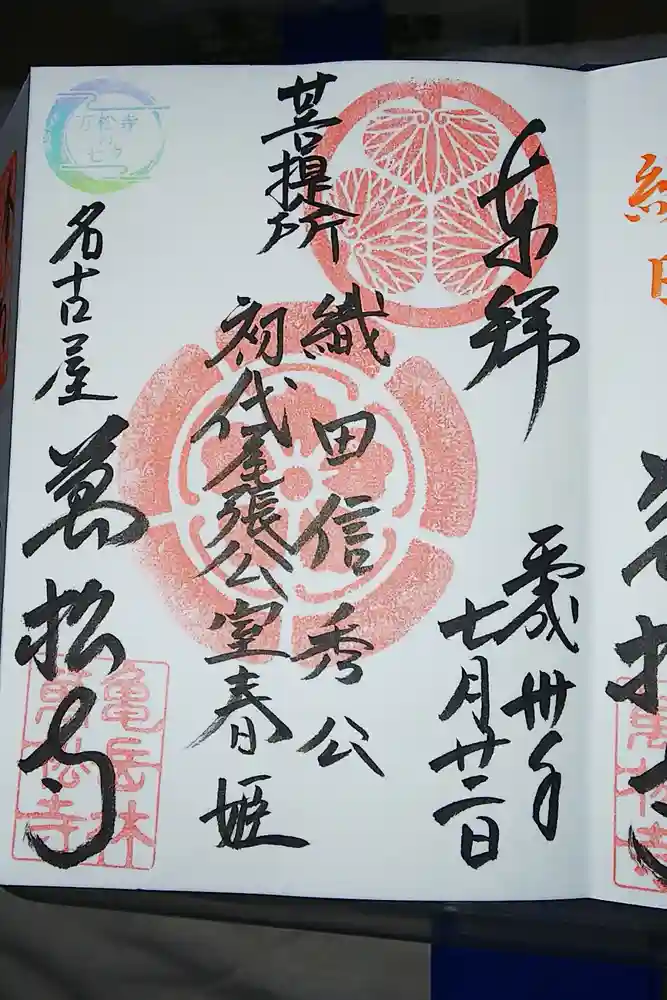 奉拝
平成卅年
七月廿二日
菩提所
織田信秀公
初代尾張公室春姫
名古屋
萬松寺
亀岳林
萬松寺
万松寺
の
七夕